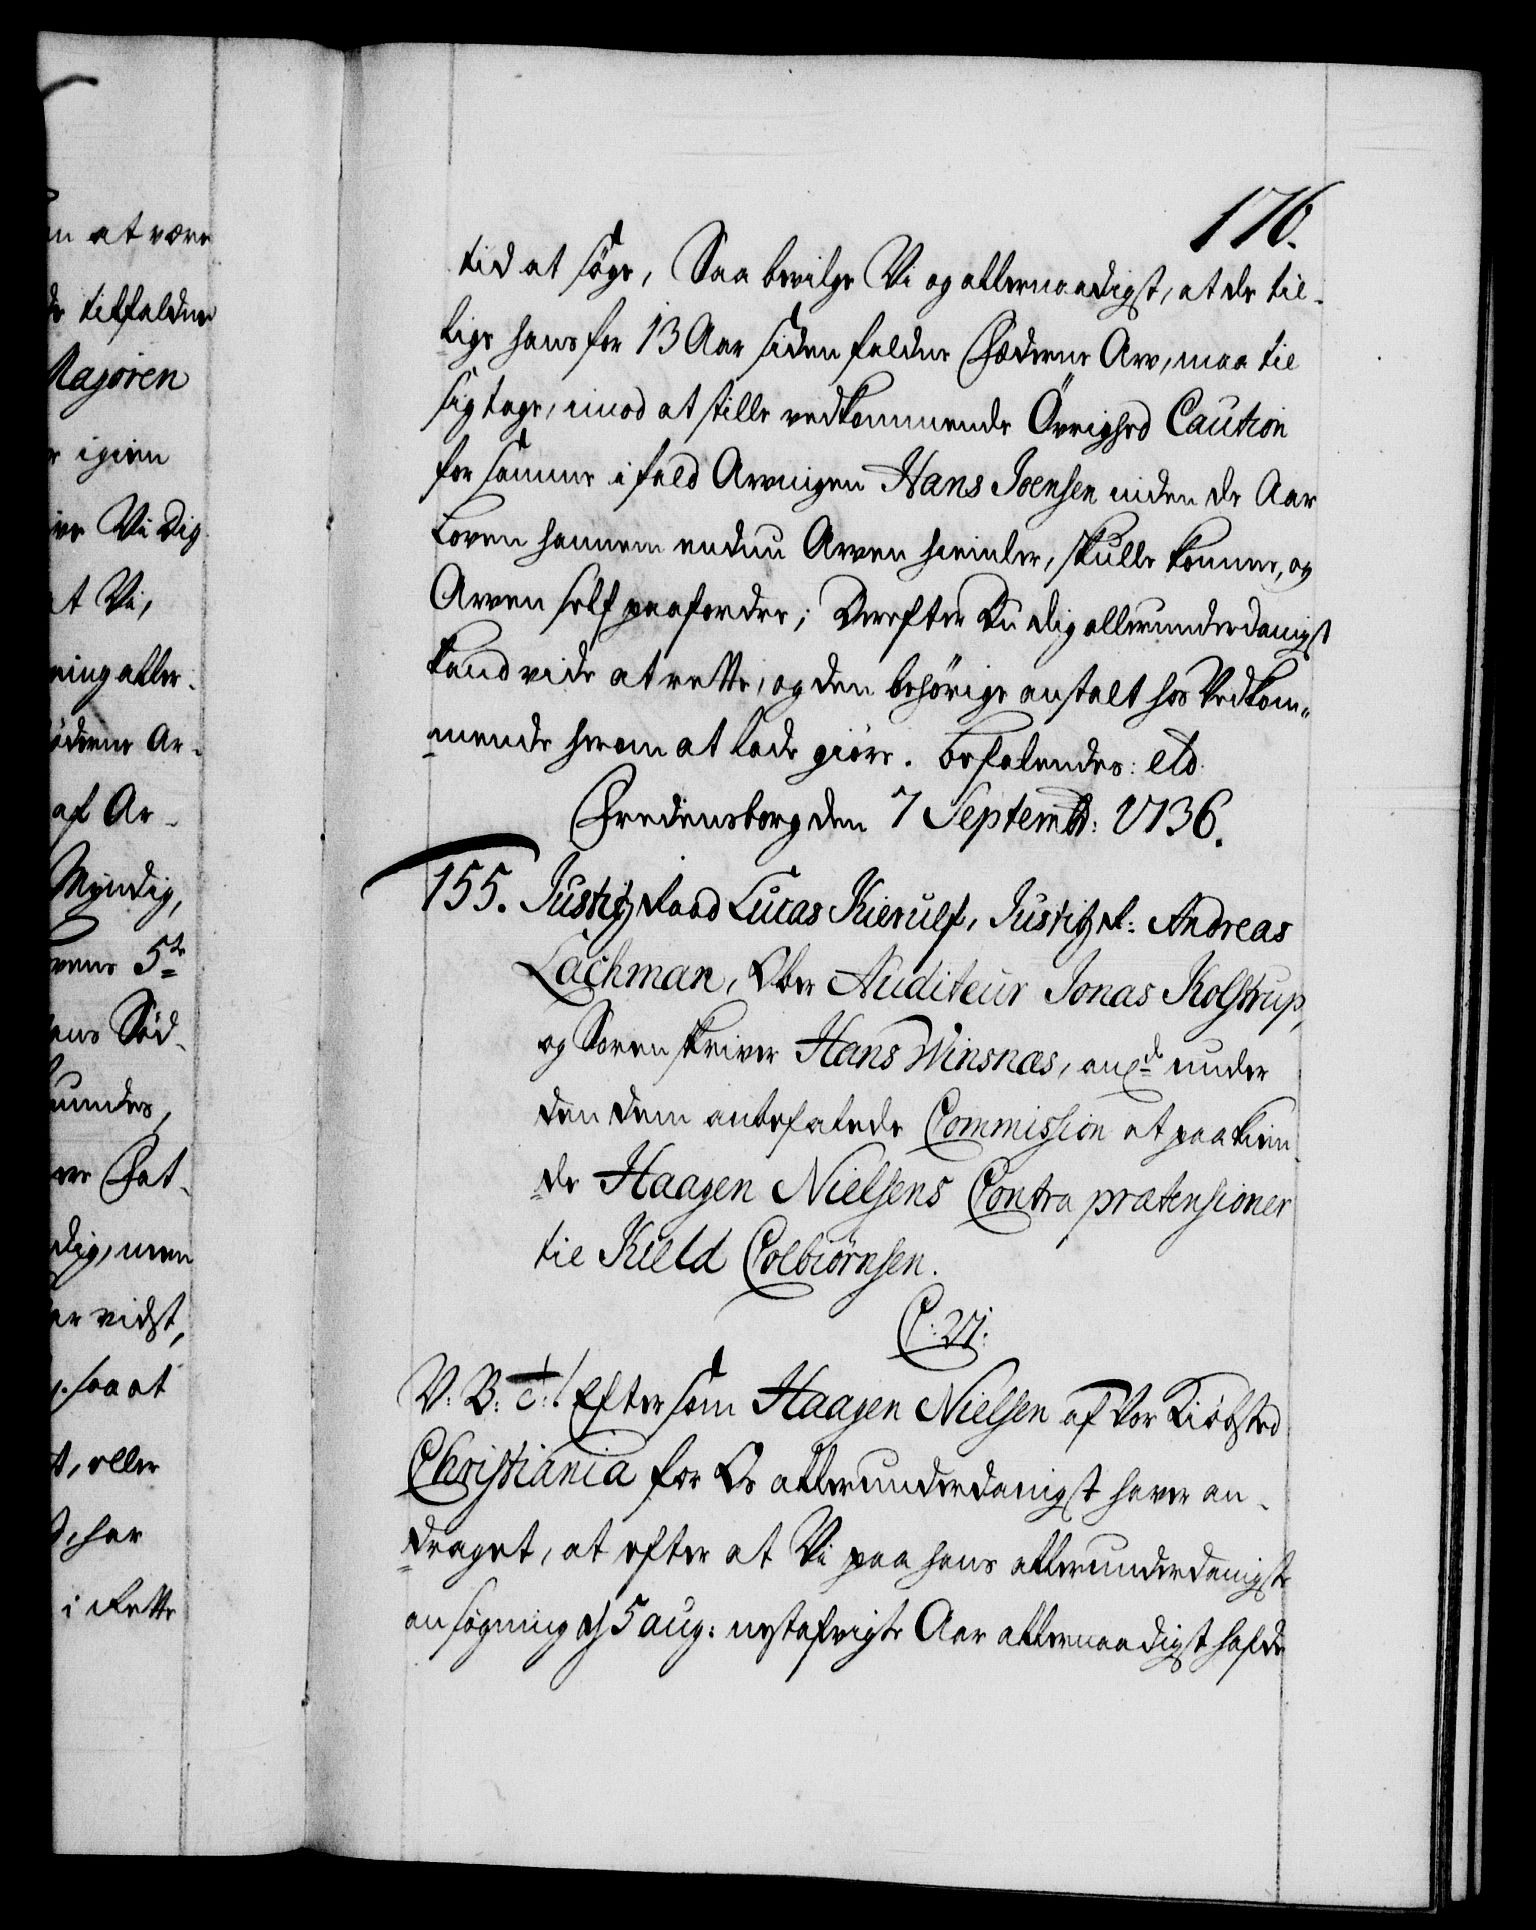 176.
tid at søge, Saa bevilge Vi og allernaadigst, at de til-
lige hans for 13 Aar siden faldne Fæderne Arv, maa til
sig tage, imod at stille vedkommende Övrighed Caution
for samme ifald Arvingen Hans Joensen inden de Aar
Loven hannem endnu Arven hiemler, skulle komme, og
Arven self paafordre; Derefter Du dig allerunderdanigst
kand vide at rette, og den behörige anstalt hos Vedkom-
mende herom at lade giöre. Befalendes: etc
Fredensborg den 7 Septembr: 1736.
155. Justitz Raad Lucas Kierulf, Justitz R: Andreas
Lachman, Ober Auditeur Jonas Kolstrup,
og Sorenskriver Hans Winsnæs, ang under
den dem anbefalede Commission at paakien-
de Haagen Nielsens Contra prætensioner
til Kield Colbiørnsen.
C: VI:
V: B: c: Eftersom Haagen Nielsen af Vor Kiøbsted
Christiania for Os allerunderdanigst haver an-
draget, at efter at Vi paa hans allerunderdanigste
ansøgning af 5 aug: nestafvigte Aar allernaadigst hafde
n at være
de tilfaldne
Majoren
r igien
Vi dig
at Vi,
ning aller-
øderne Ar-
af Ar-
Myndig,
vens 5te
ens Sød-
undes,
Fat-
dig, men
ar vidst,
saa at
t, eller
har
i Rette